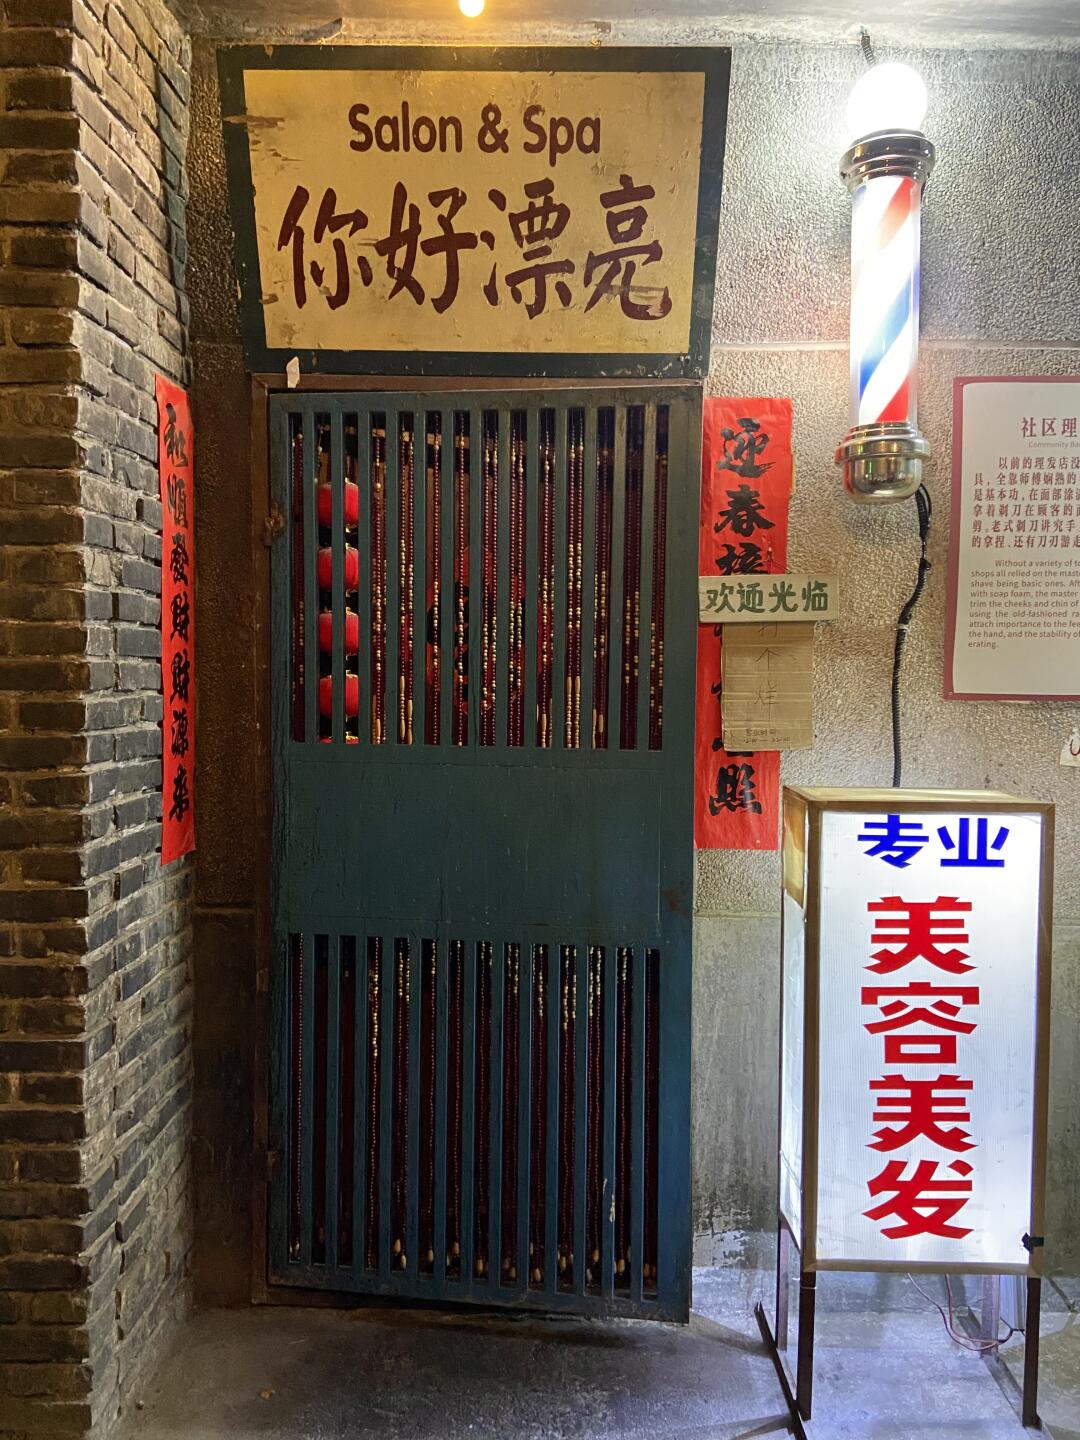 Salon & Spa
你好漂亮
和順發財財源來
迎春接
照
欢迎光临
打个烊
专业
美容美发
社区理
Community Ba
以前的理发店没
具，全靠师傅娴熟的
是基本功，在面部涂满
拿着剃刀在顾客的面
剪。老式剃刀讲究手
的拿捏、还有刀刃游走
Without a variety of to
shops all relied on the maste
shave being basic ones. Aft
with soap foam, the master
trim the cheeks and chin of
using the old-fashioned ra
attach importance to the fee
the hand, and the stability of
erating.